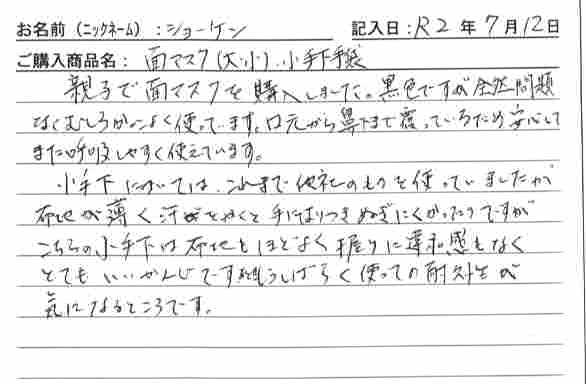 お名前(ニックネーム):ショーケン 記入日:R2年7月12日
ご購入商品名: 面マスク(大・小)、小手下手袋
親子で面マスクを購入しました。黒色ですが全然問題
なくむしろかっこよく使っています。口元から鼻下まで覆っているため安心して
また呼吸しやすく使えています。
小手下については、これまで他社のものを使っていましたが
布地が薄く汗がとやくと手にはりつきぬぎにくかったりですが
こちらの小手下は布地もほどよく握りに違和感もなく
とてもいいかんじです。もうしばらく使っての耐久性が
気になるところです。